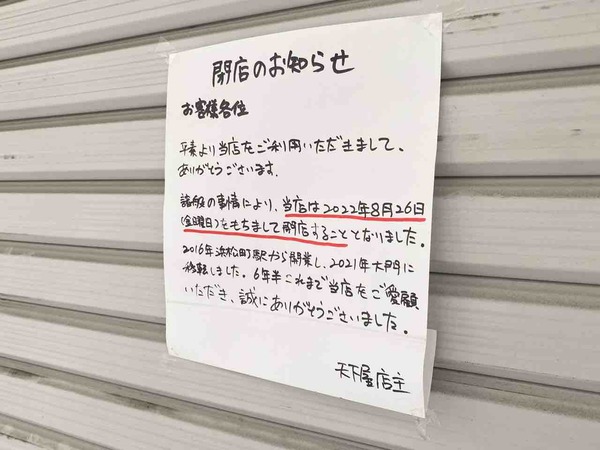 閉店のお知らせ
お客様各位
平素より当店をご利用いただきまして、
ありがとうございます.
諸般の事情により、当店は2022年8月26日
(金曜日)をもちまして閉店することとなりました。
2016年浜松町駅から開業し、2021年大門に
移転しました。6年半これまで当店をご愛顧
いただき、誠にありがとうございました。
天下屋店主